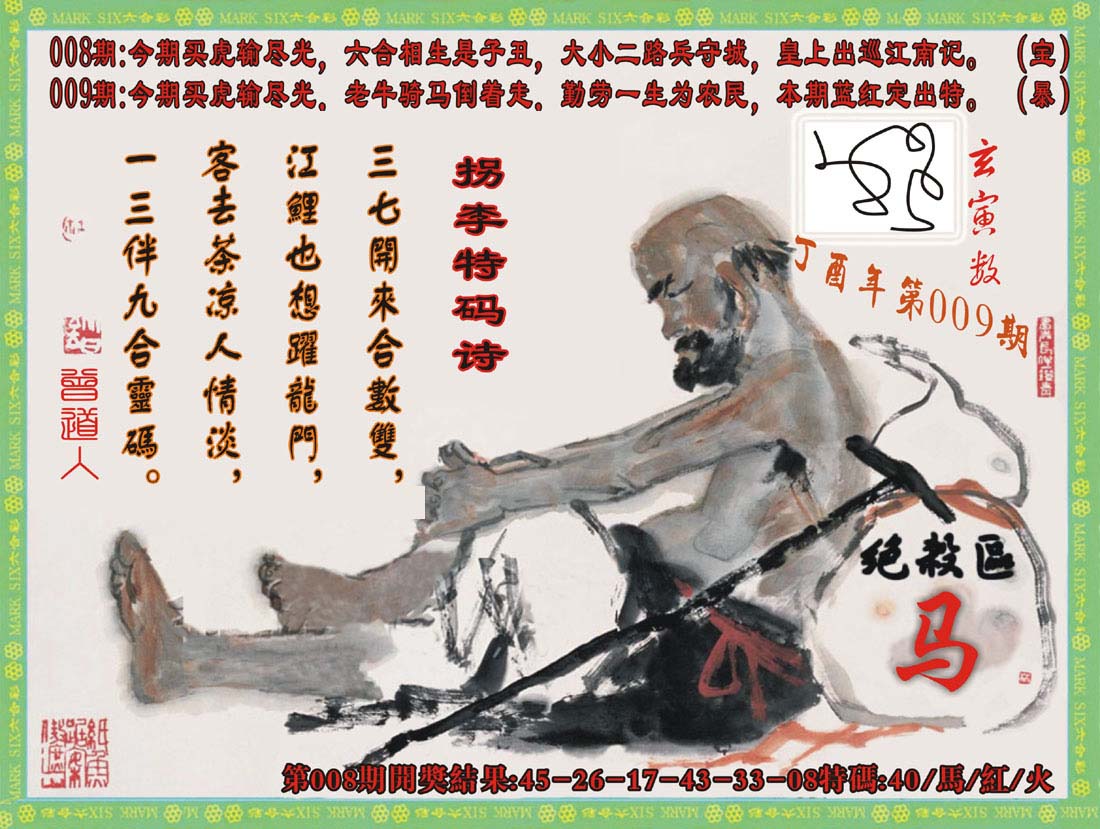 MARK SIX六合彩
008期:今期买虎输尽光，六合相生是子丑，大小二路兵守城，皇上出巡江南记。 （宝）
009期:今期买虎输尽光．老牛骑马倒着走．勤劳一生为农民，本期蓝红定出特。 （暴）
玄寅数
丁酉年第009期
拐李特码诗
三七開來合數雙，
江鯉也想躍龍門，
客去茶凉人情淡，
一三伴九合靈碼。
曾道人
绝殺區
马
第008期開獎結果:45-26-17-43-33-08特碼:40/馬/紅/火